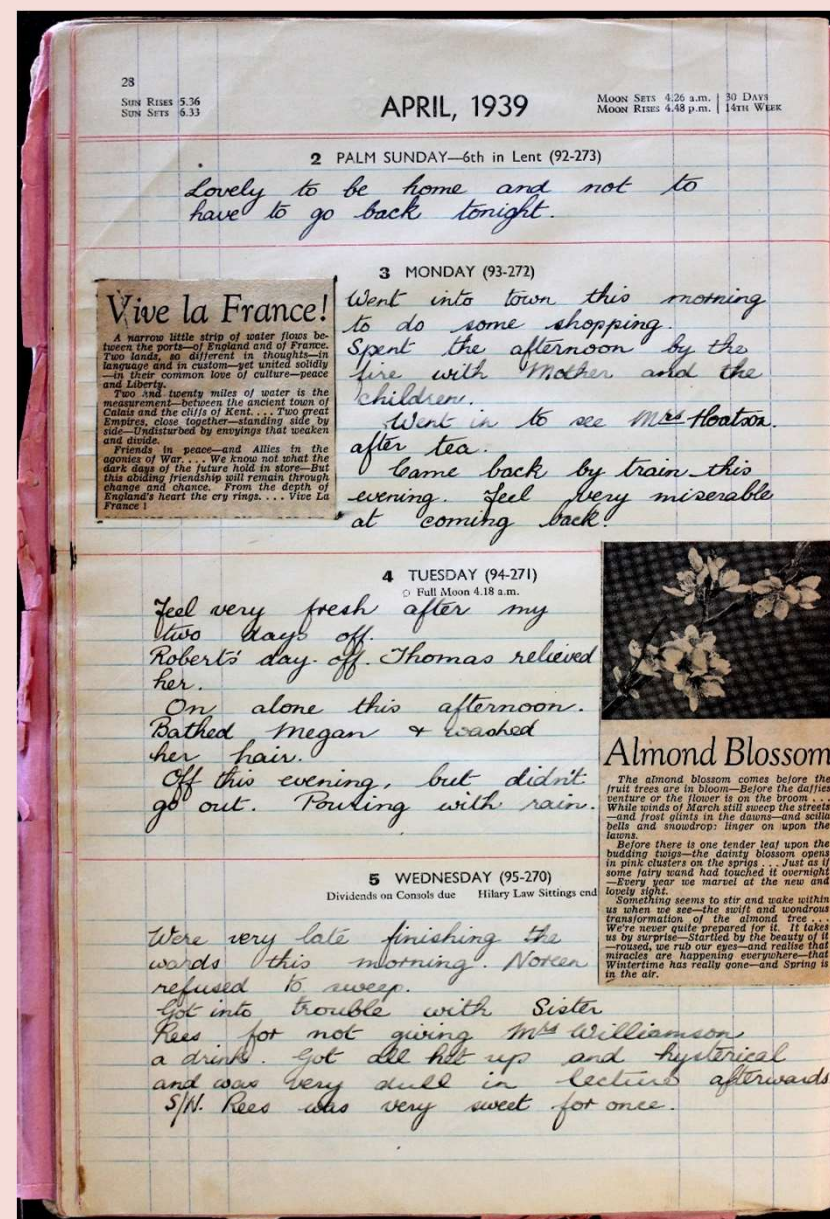 28
SUN RISES 5.36
SUN SETS 6.33
APRIL, 1939
MOON SETS 4.26 a.m. | 30 DAYS
MOON RISES 4.48 p.m. | 14TH WEEK
2 PALM SUNDAY—6th in Lent (92-273)
Lovely to be home and not to
have to go back tonight.
3 MONDAY (93-272)
Went into town this morning
to do some shopping.
Spent the afternoon by the
fire with Mother and the
children.
Went in to see Mrs Hoatson.
after tea.
Came back by train this
evening. Feel very miserable
at coming back.
Vive la France!
A narrow little strip of water flows be-
tween the ports—of England and of France.
Two lands, so different in thoughts—in
language and in custom—yet united solidly
—in their common love of culture—peace
and Liberty.
Two and twenty miles of water is the
measurement—between the ancient town of
Calais and the cliffs of Kent. . . . Two great
Empires, close together—standing side by
side—Undisturbed by envyings that weaken
and divide.
Friends in peace—and Allies in the
agonies of War. . . . We know not what the
dark days of the future hold in store—But
this abiding friendship will remain through
change and chance. From the depth of
England's heart the cry rings. . . . Vive La
France !
4 TUESDAY (94-271)
○ Full Moon 4.18 a.m.
Feel very fresh after my
two days off.
Roberts' day off. Thomas relieved
her.
On alone this afternoon.
Bathed Megan & washed
her hair.
Off this evening, but didn't
go out. Pouring with rain.
Almond Blossom
The almond blossom comes before the
fruit trees are in bloom—Before the daffies
venture or the flower is on the broom . . .
While winds of March still sweep the streets
—and frost glints in the dawns—and scilla
bells and snowdrops linger on upon the
lawns.
Before there is one tender leaf upon the
budding twigs—the dainty blossom opens
in pink clusters on the sprigs . . . Just as if
some fairy wand had touched it overnight
—Every year we marvel at the new and
lovely sight.
Something seems to stir and wake within
us when we see—the swift and wondrous
transformation of the almond tree . . .
We're never quite prepared for it. It takes
us by surprise—Startled by the beauty of it
—roused, we rub our eyes—and realise that
miracles are happening everywhere—that
Wintertime has really gone—and Spring is
in the air.
5 WEDNESDAY (95-270)
Dividends on Consols due Hilary Law Sittings end
Were very late finishing the
wards this morning. Noreen
refused to sweep.
Got into trouble with Sister
Rees for not giving Mrs Williamson
a drink. Got all het up and hysterical
and was very dull in lecture afterwards
S/N. Rees was very sweet for once.